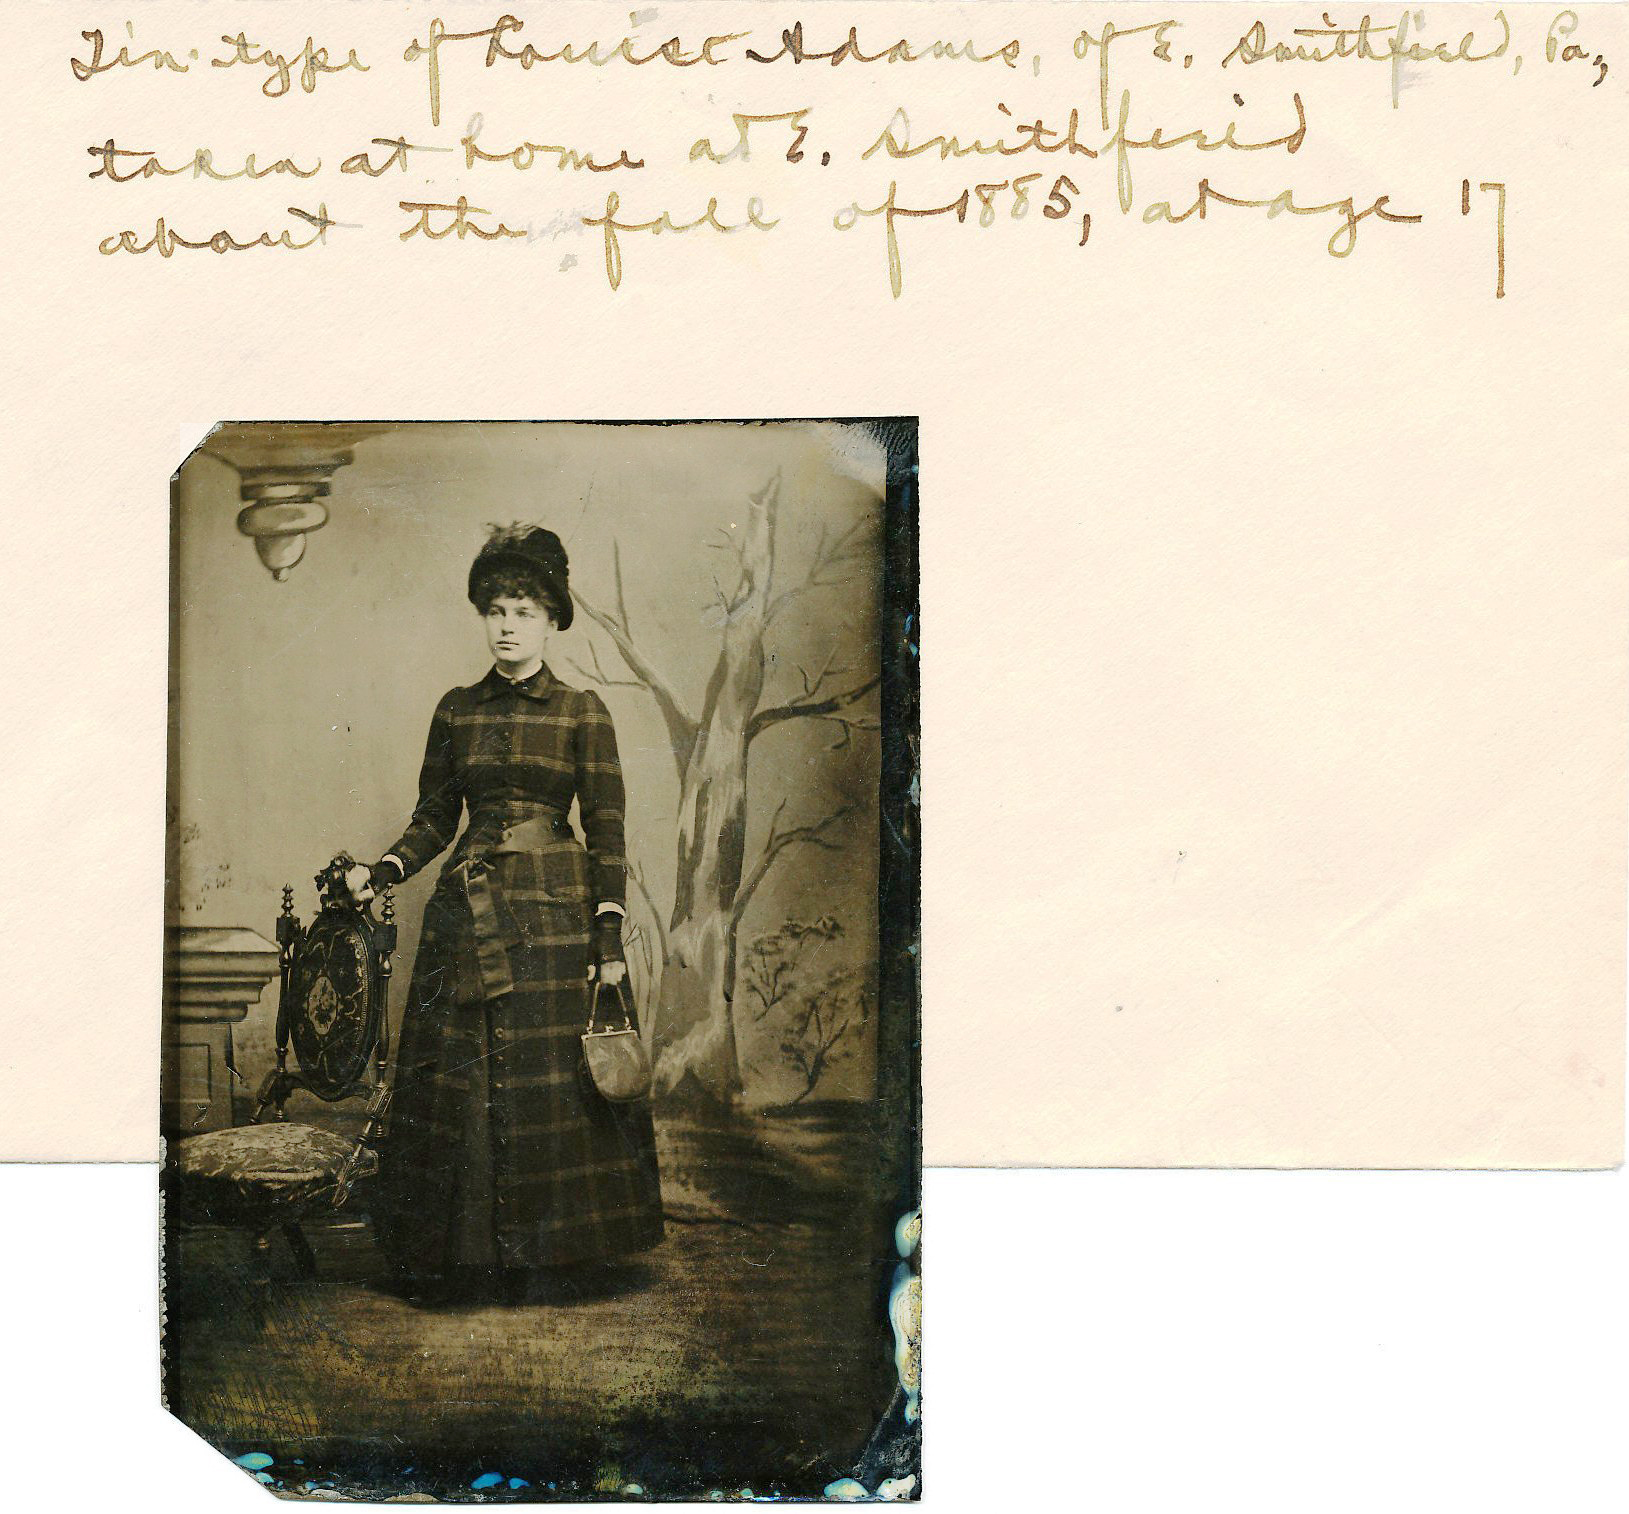 Tin-type of Louise Adams, of E. Smithfield, Pa.,
taken at home at E. Smithfield
about the fall of 1885, at age 17